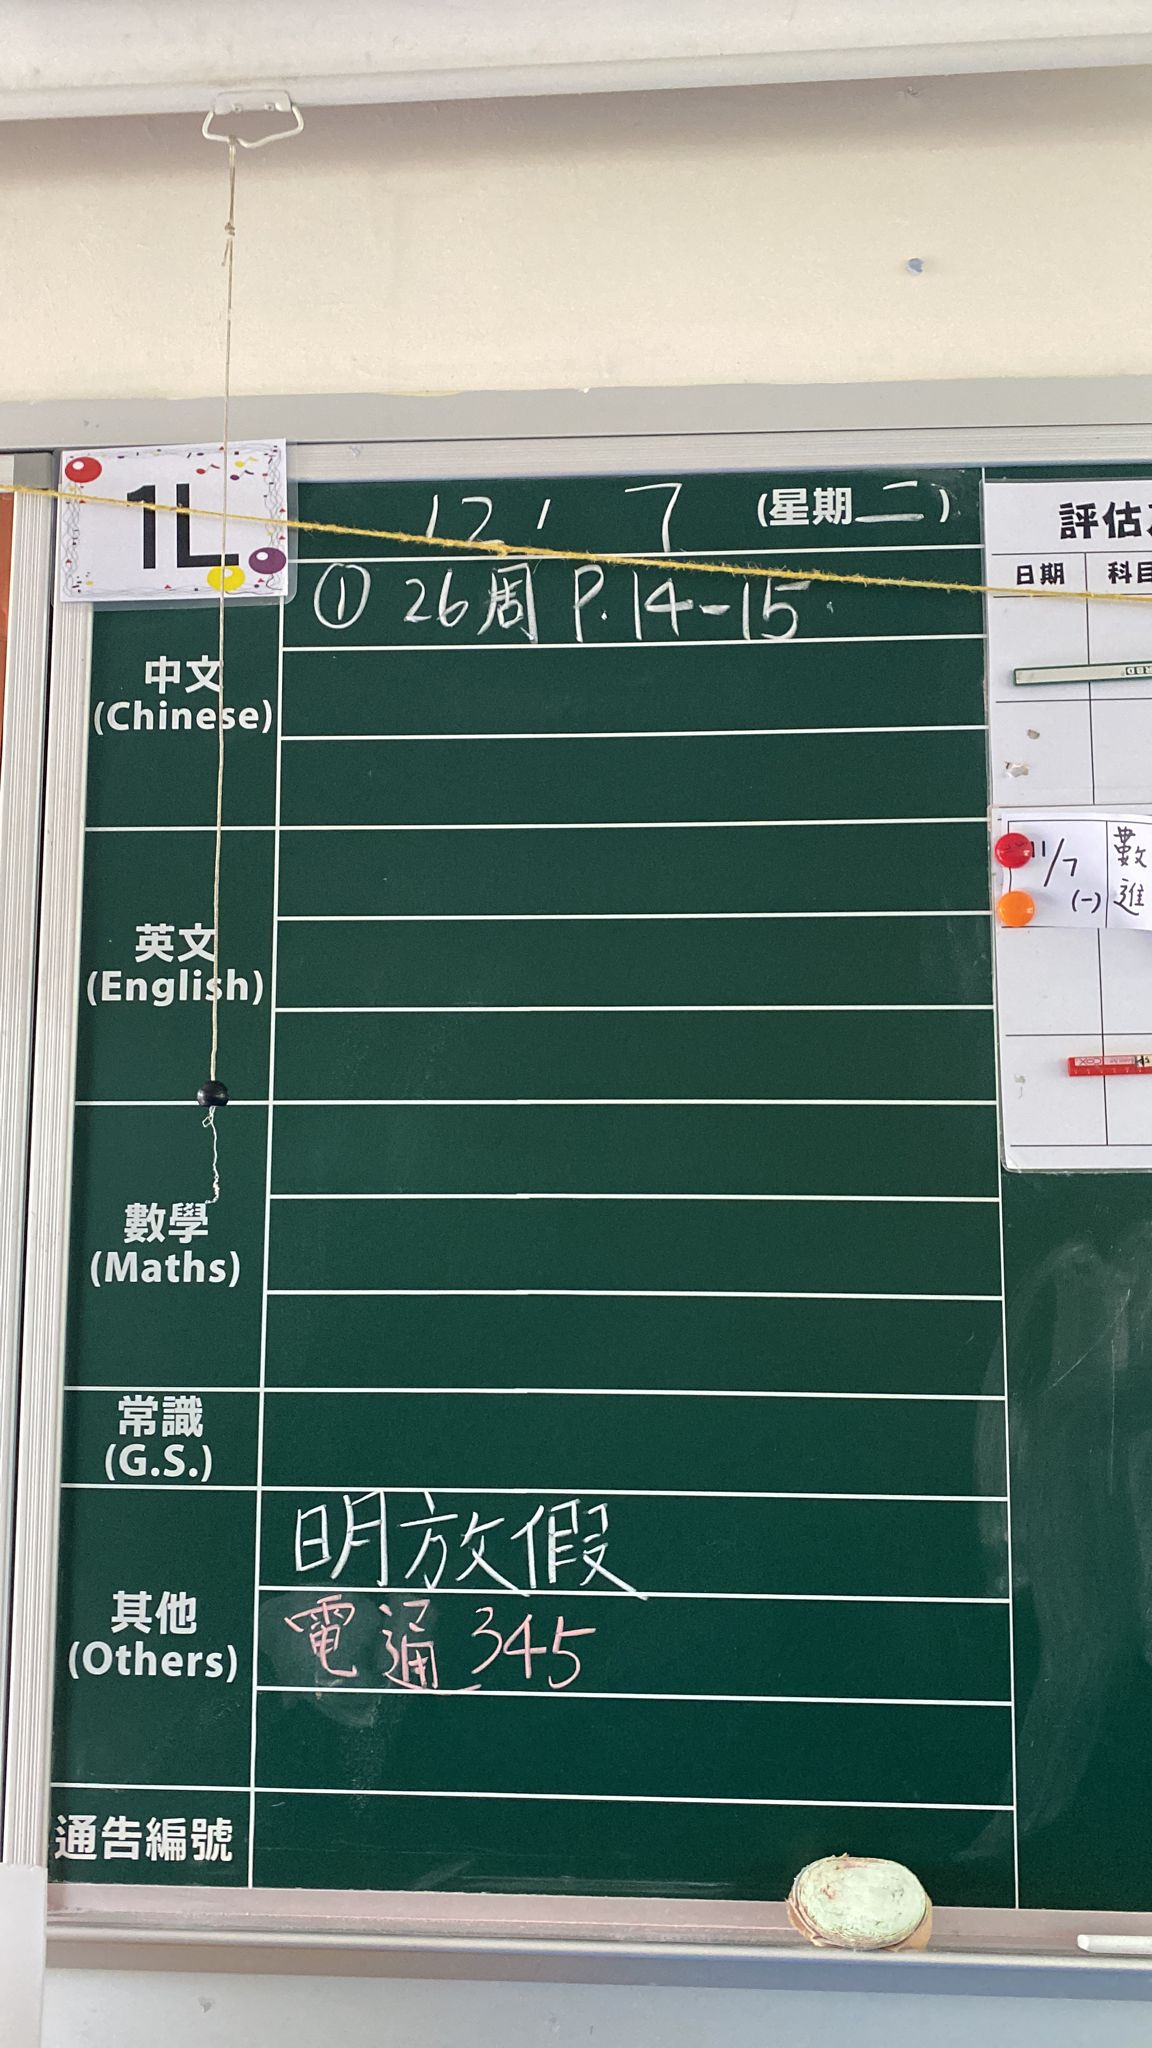 1L
12 / 7 (星期二)
① 26周 P.14-15
中文
(Chinese)
英文
(English)
數學
(Maths)
常識
(G.S.)
其他
(Others)
明放假
電通 345
通告編號
評估
日期 科目
11/7 (一) 數
進